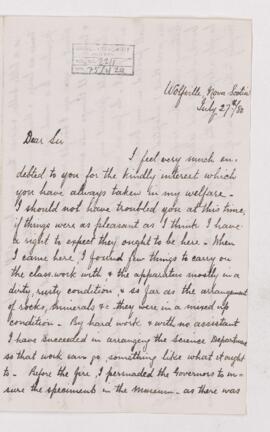 Wolfville, Nova Scotia
July 27th/80
Dear Sir
I feel very much in-
debted to you for the kindly interest which
you have always taken in my welfare -
I should not have troubled you at this time,
if things were as pleasant as I think I have
a right to expect they ought to be here. When
I came here, I found few things to carry on
the class work with & the apparatus mostly in a
dirty, rusty condition & so far as the arrangement
of rocks, minerals &c. they were in a mixed up
condition - By hard work & with no assistant
I have succeeded in arranging the Science Department
so that work can go, something like what it ought
to - Before the fire, I persuaded the Governors to in-
sure the specimens in the Museum - as there was